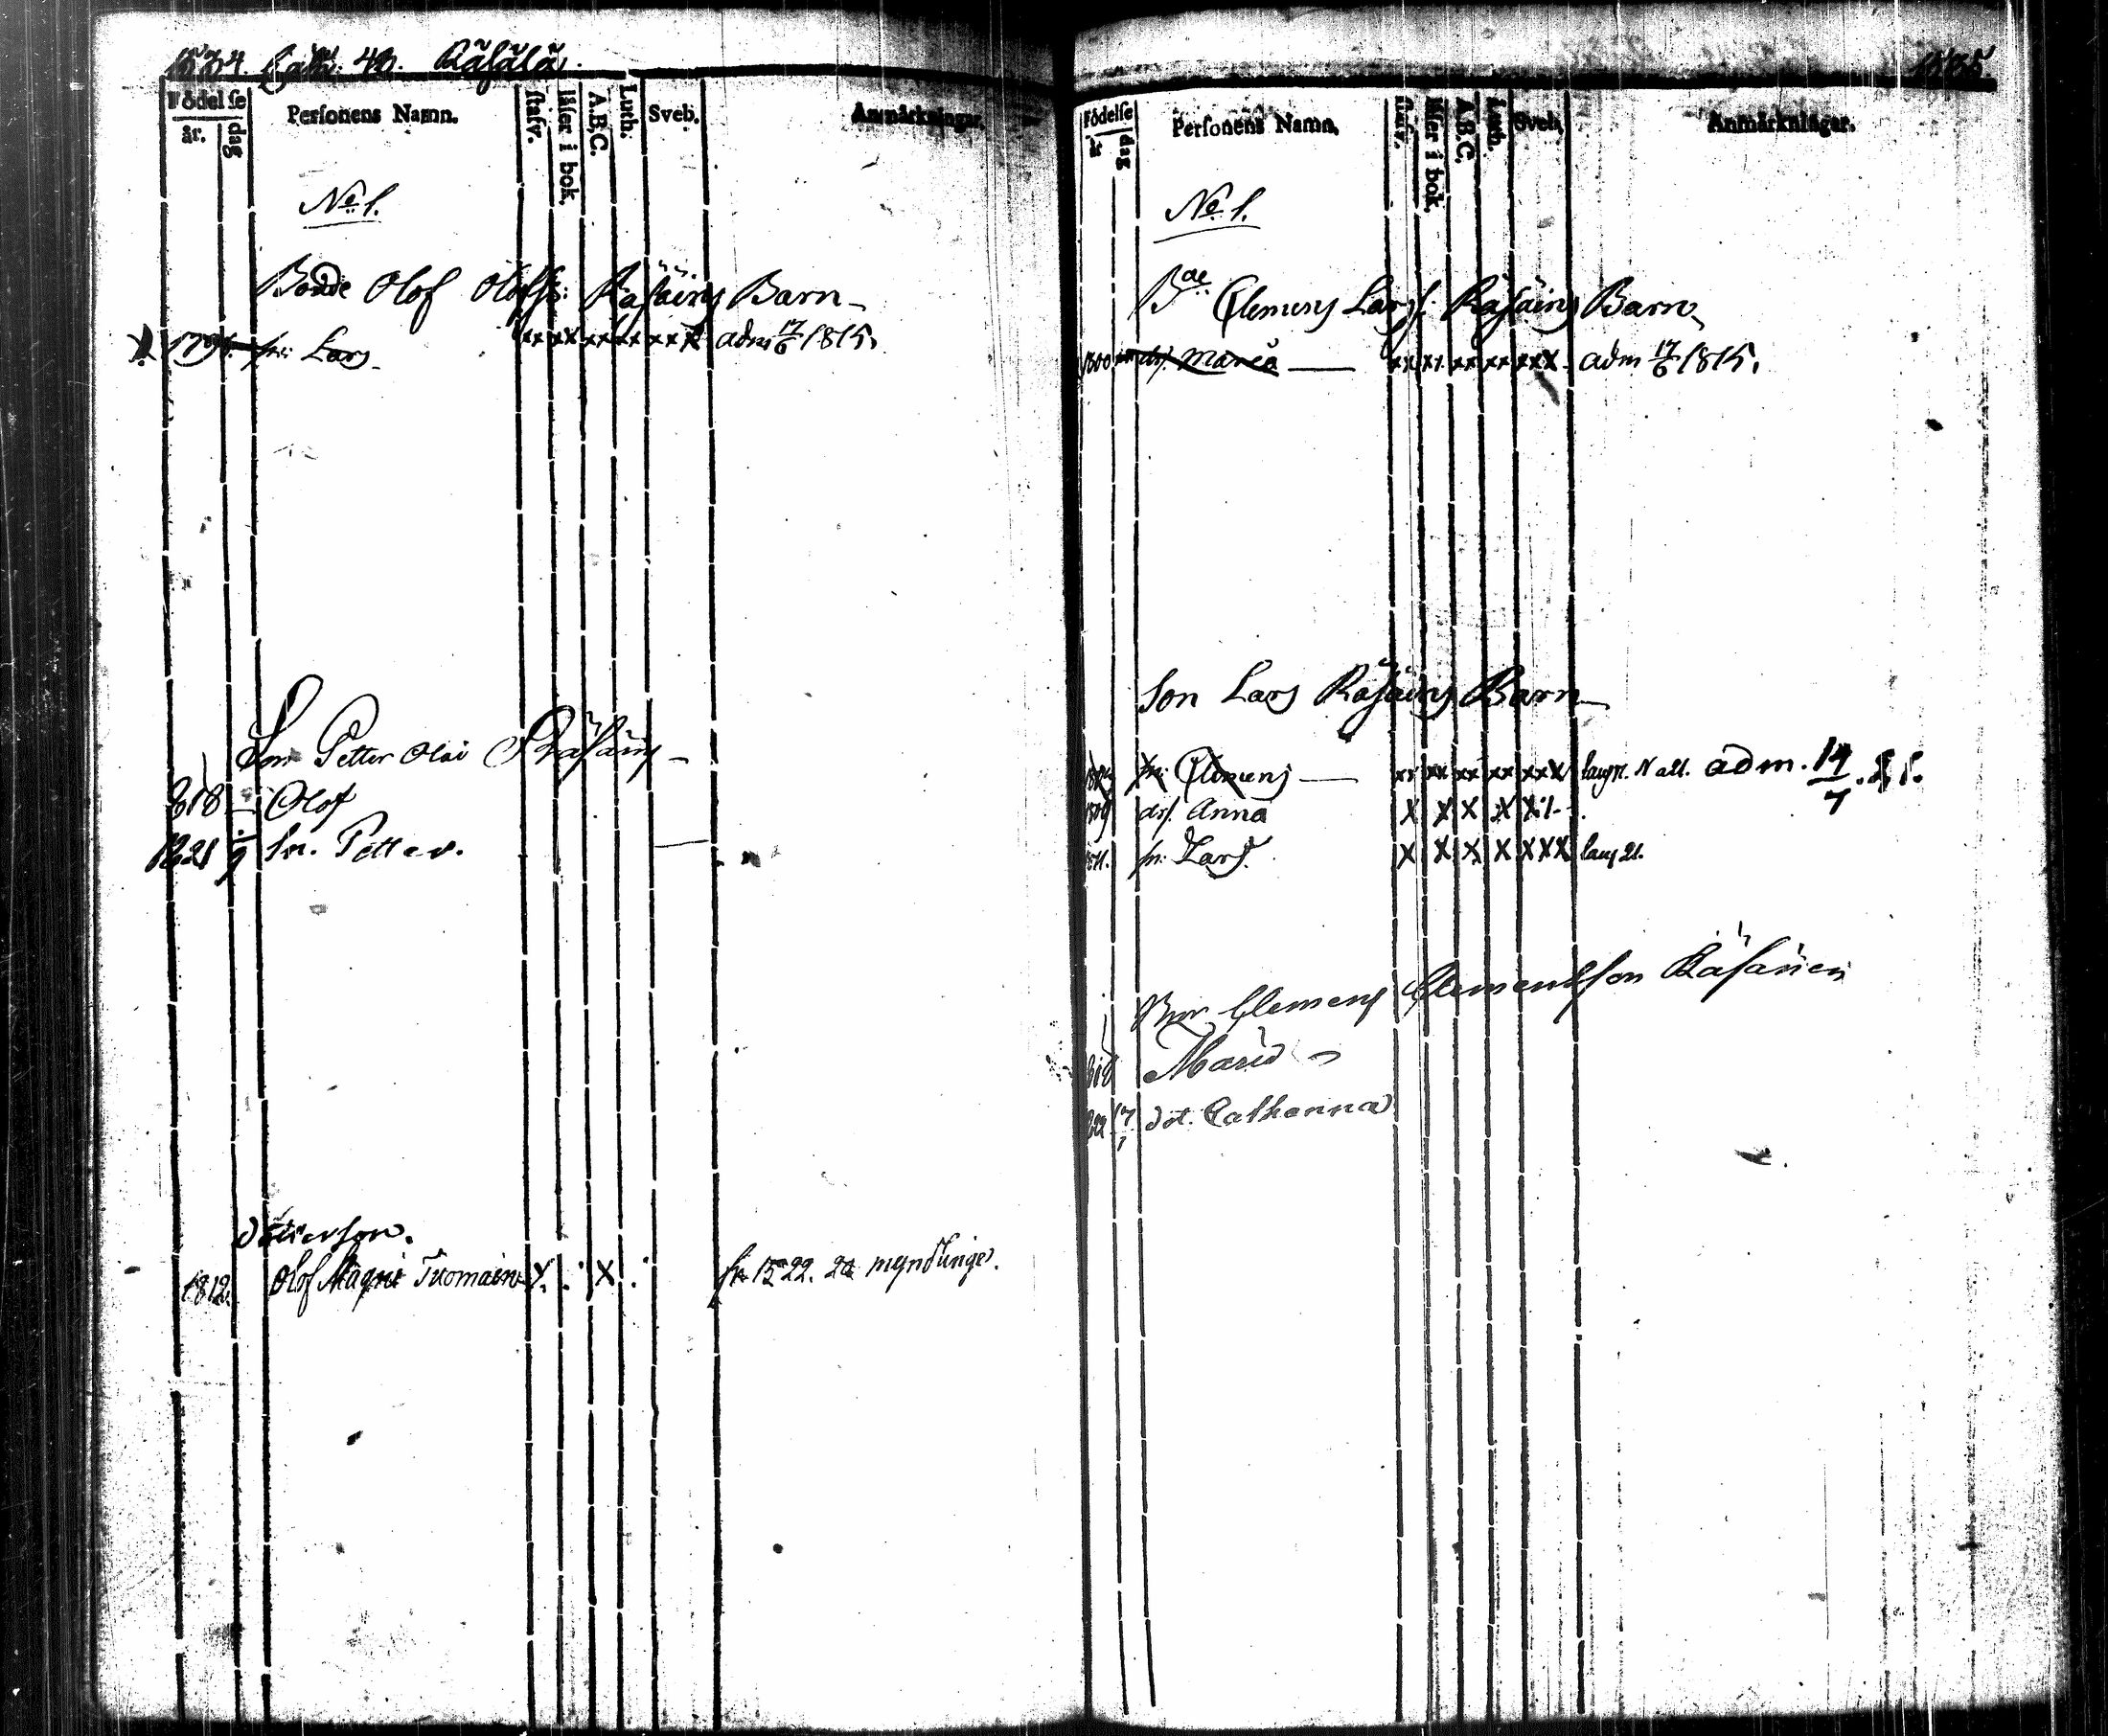 1534. Cath: 40. Räsälä.
Födelse
år. dag Personens Namn. stafv. läser i bok. A.B.C. Luth: Sveb. Anmärkningar.
No 1.
Bonde Olof Olofss: Räsäins Barn
179 sn: Lars xx xx xx xx xxx adm 17/6 1815.
Son Petter Olai Räsäins
818 Olof
1821 9 Sn. Petter.
dotterson.
1812. Olof Magni Tuomain x. . x . 22. myndinge.
1535.
Födelse
år dag Personens Namn. stafv. läser i bok. A.B.C. Luth. Sveb. Anmärkningar.
No 1.
Clemens Larss: Räsäins Barn
1800 dr. Maria xx xx xx xx xxx adm 17/6 1815.
Son Lars Räsäins Barn
sn: Clemens xx xx xx xx xxx adm. 14/7. 21.
1809 dr. Anna x x x x x
sn: Lars. x x x x xxx 21.
Bror Clemens Clementsson Räsänen
818 Maria
822 17/1 dot. Catharina